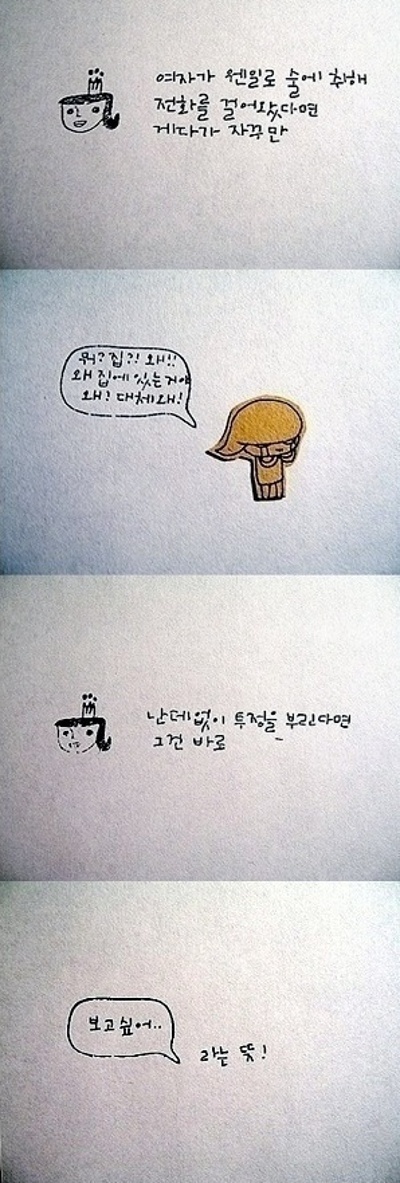 여자가 웬일로 술에 취해
전화를 걸어왔다면
게다가 자꾸만
뭐? 집?! 왜!!
왜 집에 있는거야
왜! 대체왜!
난데없이 투정을 부린다면
그건 바로
보고싶어..
라는 뜻!